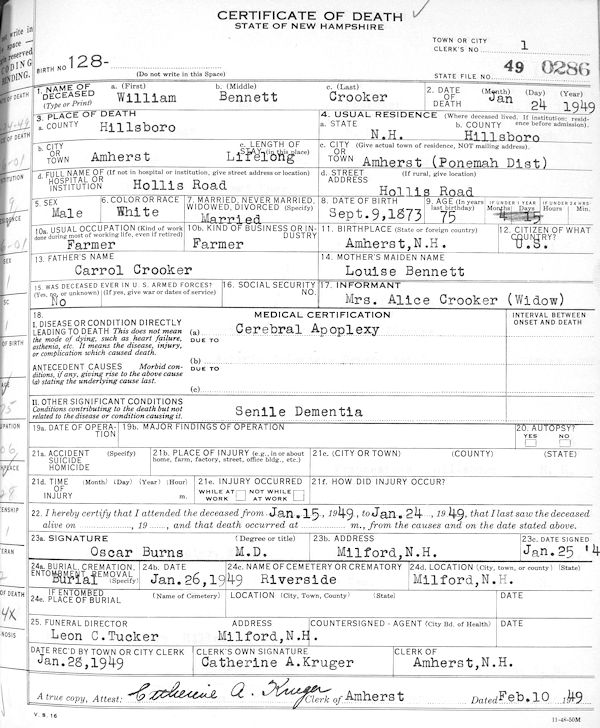 CERTIFICATE OF DEATH
STATE OF NEW HAMPSHIRE
TOWN OR CITY
CLERK'S NO. 1
BIRTH NO. 128-
(Do not write in this Space)
STATE FILE NO. 49 0286
1. NAME OF DECEASED (Type or Print) a. (First) b. (Middle) c. (Last)
William Bennett Crooker
2. DATE OF DEATH (Month) (Day) (Year)
Jan 24 1949
3. PLACE OF DEATH
a. COUNTY Hillsboro
4. USUAL RESIDENCE (Where deceased lived. If institution: residence before admission).
a. STATE N.H. b. COUNTY Hillsboro
b. CITY OR TOWN Amherst c. LENGTH OF STAY (in this place) Lifelong
c. CITY OR TOWN (Give actual town of residence, NOT mailing address). Amherst (Ponemah Dist)
d. FULL NAME OF HOSPITAL OR INSTITUTION (If not in hospital or institution, give street address or location) Hollis Road
d. STREET ADDRESS (If rural, give location) Hollis Road
5. SEX Male
6. COLOR OR RACE White
7. MARRIED, NEVER MARRIED, WIDOWED, DIVORCED (Specify) Married
8. DATE OF BIRTH Sept.9,1873
9. AGE (In years last birthday) 75
IF UNDER 1 YEAR Months Days 4 15
IF UNDER 24 HRS. Hours Min.
10a. USUAL OCCUPATION (Kind of work done during most of working life, even if retired) Farmer
10b. KIND OF BUSINESS OR INDUSTRY Farmer
11. BIRTHPLACE (State or foreign country) Amherst,N.H.
12. CITIZEN OF WHAT COUNTRY? U.S.
13. FATHER'S NAME Carrol Crooker
14. MOTHER'S MAIDEN NAME Louise Bennett
15. WAS DECEASED EVER IN U. S. ARMED FORCES? (Yes, no, or unknown) (If yes, give war or dates of service) No
16. SOCIAL SECURITY NO.
17. INFORMANT Mrs. Alice Crooker (Widow)
18. MEDICAL CERTIFICATION
INTERVAL BETWEEN ONSET AND DEATH
I. DISEASE OR CONDITION DIRECTLY LEADING TO DEATH This does not mean the mode of dying, such as heart failure, asthenia, etc. It means the disease, injury, or complication which caused death.
(a) Cerebral Apoplexy
DUE TO
ANTECEDENT CAUSES Morbid conditions, if any, giving rise to the above cause (a) stating the underlying cause last.
(b)
DUE TO
(c)
II. OTHER SIGNIFICANT CONDITIONS
Conditions contributing to the death but not related to the disease or condition causing it.
Senile Dementia
19a. DATE OF OPERATION
19b. MAJOR FINDINGS OF OPERATION
20. AUTOPSY? YES NO
21a. ACCIDENT SUICIDE HOMICIDE (Specify)
21b. PLACE OF INJURY (e.g., in or about home, farm, factory, street, office bldg., etc.)
21c. (CITY OR TOWN) (COUNTY) (STATE)
21d. TIME OF INJURY (Month) (Day) (Year) (Hour) m.
21e. INJURY OCCURRED WHILE AT WORK NOT WHILE AT WORK
21f. HOW DID INJURY OCCUR?
22. I hereby certify that I attended the deceased from Jan.15, 1949, to Jan.24, 1949, that I last saw the deceased
alive on, 19, and that death occurred at m., from the causes and on the date stated above.
23a. SIGNATURE (Degree or title) Oscar Burns M.D.
23b. ADDRESS Milford,N.H.
23c. DATE SIGNED Jan.25 '4
24a. BURIAL, CREMATION, ENTOMBMENT, REMOVAL (Specify) Burial
24b. DATE Jan.26,1949
24c. NAME OF CEMETERY OR CREMATORY Riverside
24d. LOCATION (City, town, or county) (State) Milford,N.H.
IF ENTOMBED
24e. PLACE OF BURIAL (Name of Cemetery) LOCATION (City, Town, County) (State) DATE
25. FUNERAL DIRECTOR ADDRESS COUNTERSIGNED - AGENT (City Bd. of Health) DATE
Leon C.Tucker Milford,N.H.
DATE REC'D BY TOWN OR CITY CLERK CLERK'S OWN SIGNATURE CLERK OF
Jan.28,1949 Catherine A.Kruger Amherst,N.H.
A true copy, Attest: Catherine A. Kruger Clerk of Amherst Dated Feb.10 1949
V. S. 16
11-48-50M